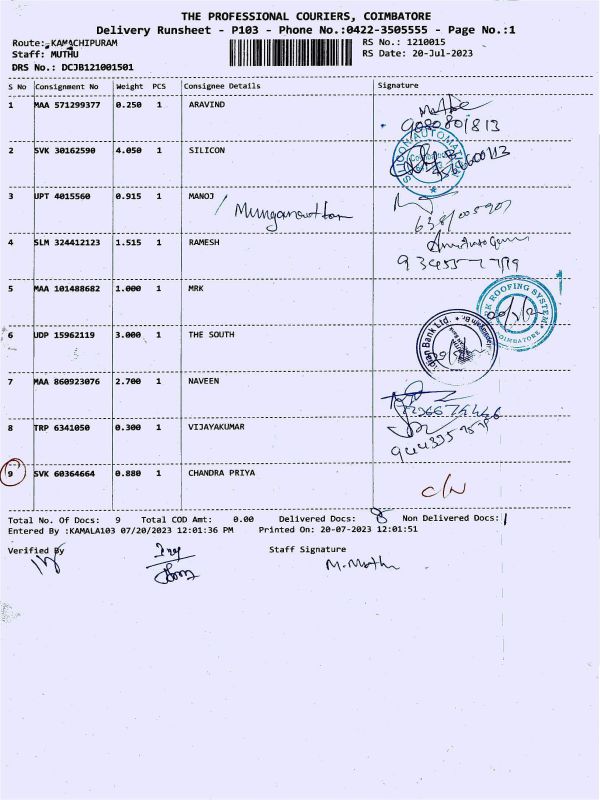 THE PROFESSIONAL COURIERS, COIMBATORE
Delivery Runsheet - P103 - Phone No.:0422-3505555 - Page No.:1
Route: KAMACHIPURAM RS No.: 1210015
Staff: MUTHU RS Date: 20-Jul-2023
DRS No.: DCJB121001501
S No Consignment No Weight PCS Consignee Details Signature
1 MAA 571299377 0.250 1 ARAVIND
2 SVK 30162590 4.050 1 SILICON
3 UPT 4015560 0.915 1 MANOJ
4 SLM 324412123 1.515 1 RAMESH
5 MAA 101488682 1.000 1 MRK
ROOFING SYSTEM
COIMBATORE
6 UDP 15962119 3.000 1 THE SOUTH
Bank Ltd.
7 MAA 860923076 2.700 1 NAVEEN
8 TRP 6341050 0.300 1 VIJAYAKUMAR
9 SVK 60364664 0.880 1 CHANDRA PRIYA
Total No. Of Docs: 9 Total COD Amt: 0.00 Delivered Docs: 8 Non Delivered Docs: 1
Entered By :KAMALA103 07/20/2023 12:01:36 PM Printed On: 20-07-2023 12:01:51
Verified By Staff Signature
M. Muthu